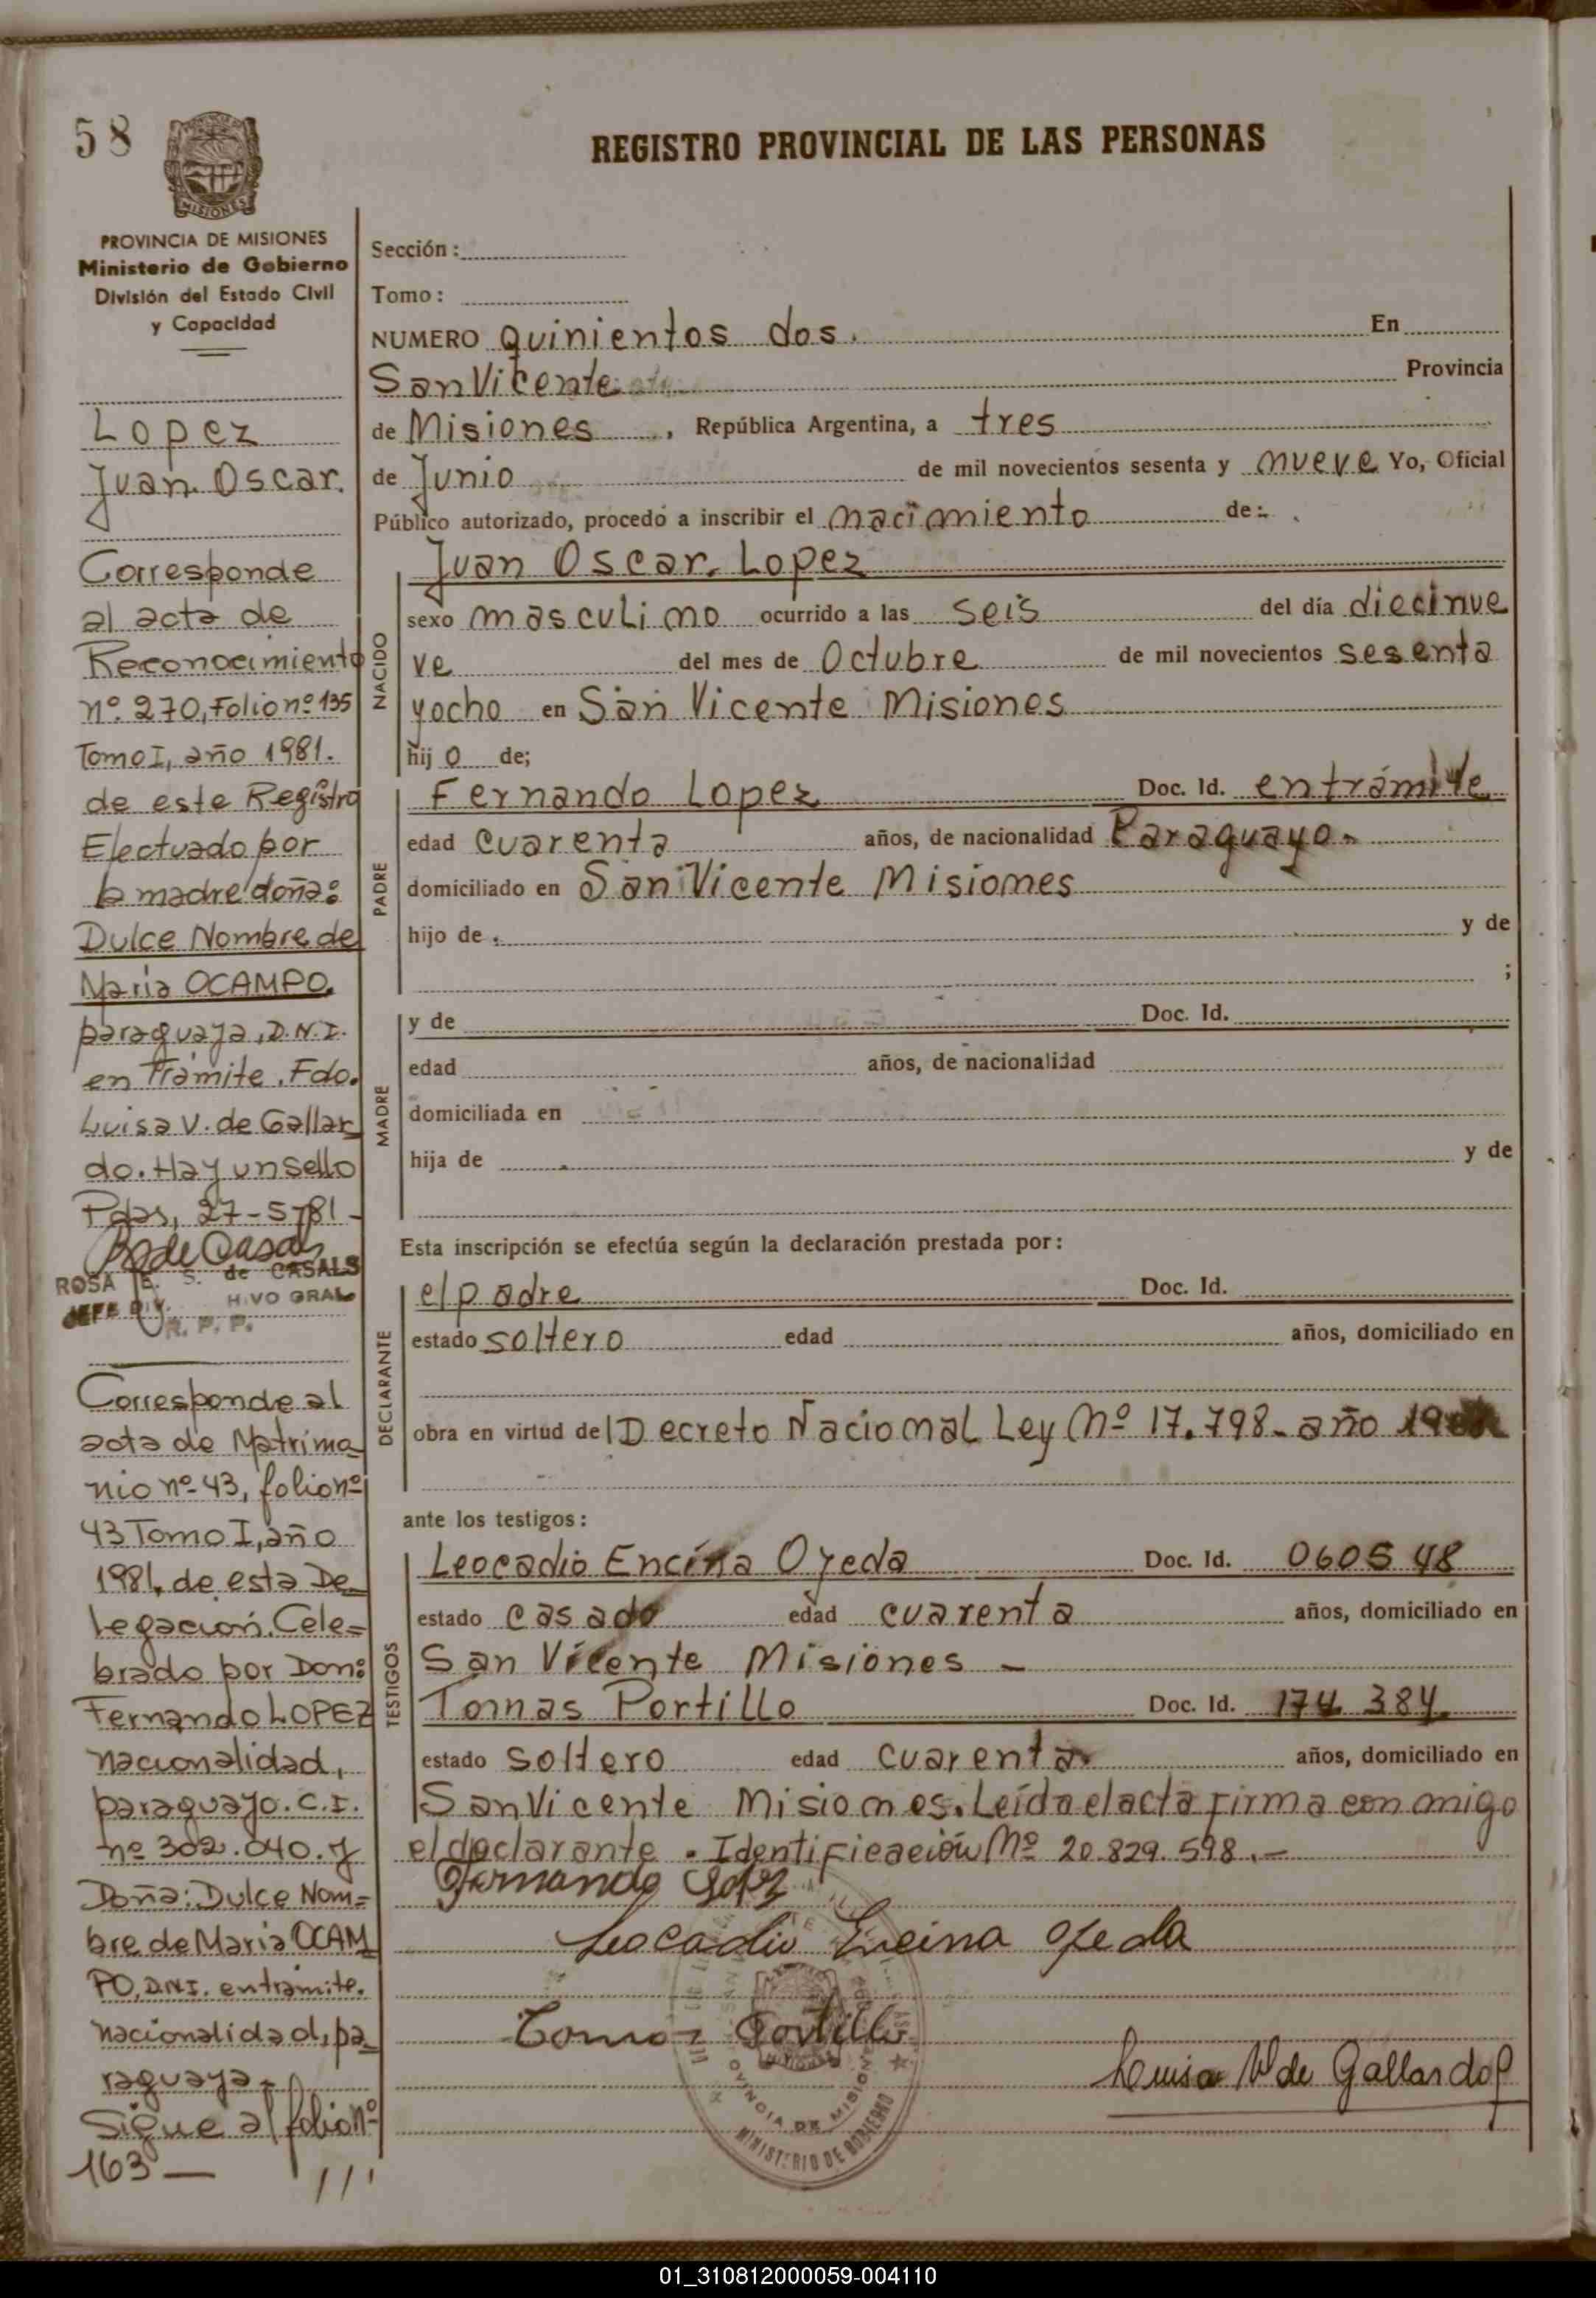 58
MISIONES
REGISTRO PROVINCIAL DE LAS PERSONAS
PROVINCIA DE MISIONES
Ministerio de Gobierno
División del Estado Civil
y Capacidad
Lopez
Juan Oscar.
Corresponde
al acta de
Reconocimiento
nº. 270, Folio nº 135
Tomo I, año 1981.
de este Registro
Efectuado por
la madre doña:
Dulce Nombre de
Maria OCAMPO.
paraguaya, D.N.I.
en Trámite. Fdo.
Luisa V. de Gallar
do. Hay un sello
Pdas, 27-5-81-
ROSA E. S. de CASALS
JEFE DIV. HIVO GRAL
R. P. P.
Corresponde al
acta de Matrimo
nio nº 43, folio nº
43 Tomo I, año
1981, de esta De
legación. Cele=
brado por Don:
Fernando LOPEZ
nacionalidad,
paraguayo. C.I.
nº 302.040. y
Doña: Dulce Nom=
bre de Maria OCAM
PO, D.N.I. en tramite.
nacionalidad, pa
raguaya.
Sigue al folio nº
163 — ///
Sección:
Tomo:
NUMERO quinientos dos. En
San Vicente Provincia
de Misiones, República Argentina, a tres
de Junio de mil novecientos sesenta y nueve Yo, Oficial
Público autorizado, procedo a inscribir el nacimiento de:
Juan Oscar. Lopez
NACIDO
sexo masculino ocurrido a las seis del día diecinue
ve del mes de Octubre de mil novecientos sesenta
yocho en San Vicente Misiones
hijo de;
PADRE
Fernando Lopez Doc. Id. entrámite
edad cuarenta años, de nacionalidad Paraguayo.
domiciliado en San Vicente Misiones
hijo de y de
;
MADRE
y de Doc. Id.
edad años, de nacionalidad
domiciliada en
hija de y de
Esta inscripción se efectúa según la declaración prestada por:
DECLARANTE
el padre Doc. Id.
estado soltero edad años, domiciliado en
obra en virtud del Decreto Nacional Ley Nº 17.798- año
ante los testigos:
TESTIGOS
Leocadio Encina Ojeda Doc. Id. 0605 48
estado casado edad cuarenta años, domiciliado en
San Vicente Misiones -
Tomas Portillo Doc. Id. 174.384.
estado soltero edad cuarenta años, domiciliado en
San Vicente Misiones. Leída el acta firma con migo
el declarante . Identificación Nº 20.829.598.-
Fernando Lopez
Leocadio Encina Ojeda
Tomas Portillo
Luisa V de Gallardo
PROVINCIA DE MISIONES
MINISTERIO DE GOBIERNO
01_310812000059-004110